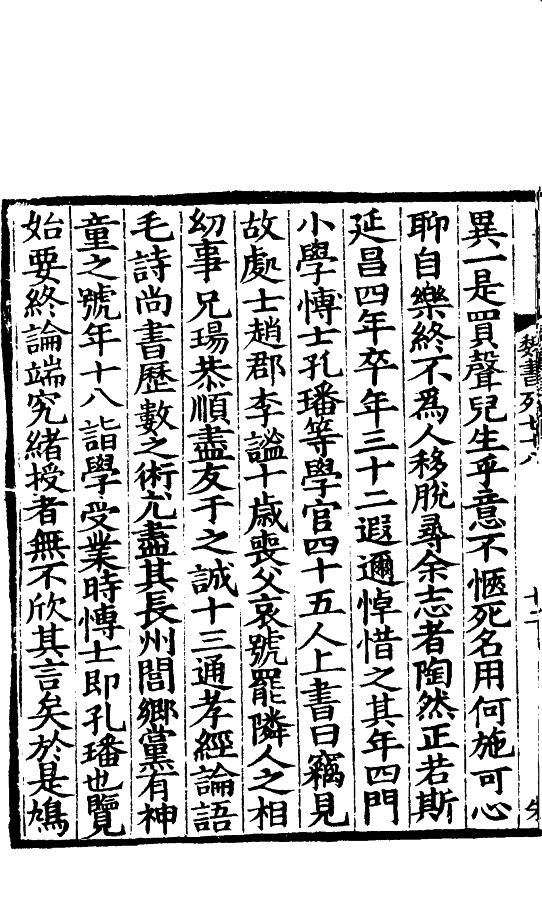 異一是買聲兒生乎意不愜死名用何施可心
聊自樂終不為人移脫尋余志者陶然正若斯
延昌四年卒年三十二遐邇悼惜之其年四門
小學博士孔璠等學官四十五人上書曰竊見
故處士趙郡李謐十歲喪父哀號罷隣人之相
幼事兄瑒恭順盡友于之誠十三通孝經論語
毛詩尚書歷數之術尤盡其長州閭鄉黨有神
童之號年十八詣學受業時博士即孔璠也覽
始要終論端究緒授者無不欣其言矣於是鳩